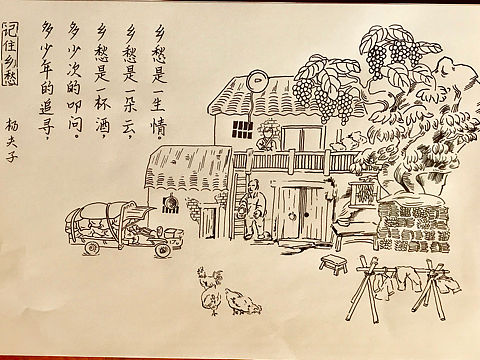 记住乡愁
杨夫子
多少年的追寻，
多少次的叩问。
乡愁是一杯酒，
乡愁是一朵云，
乡愁是一生情。